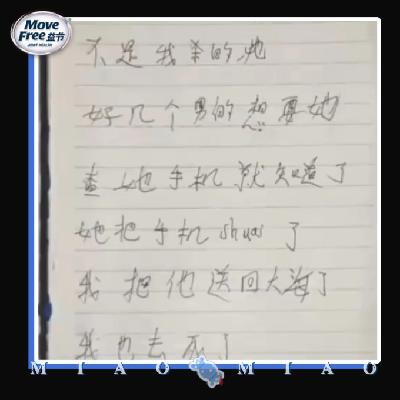 Move
Free益节
不是我杀的她
好几个男的想要她
查她手机就知道了
她把手机shuai了
我把他送回大海了
我也去死了
MIAO MIAO